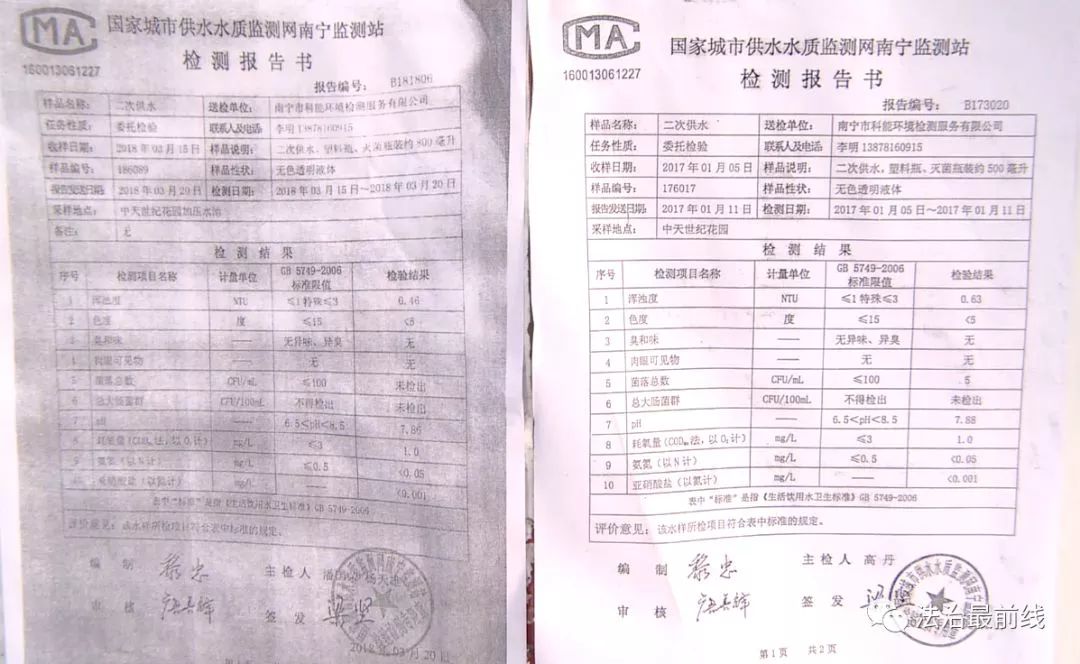 CMA
160013061227
国家城市供水水质监测网南宁监测站
检测报告书
报告编号： B181806
样品名称： 二次供水 送检单位： 南宁市科能环境检测服务有限公司
任务性质： 委托检验 联系人及电话： 李明 13878160915
收样日期： 2018年03月15日 样品说明： 二次供水，塑料瓶、灭菌瓶装约800毫升
样品编号： 186089 样品性状： 无色透明液体
报告发送日期： 2018年03月20日 检测日期： 2018年03月15日～2018年03月20日
采样地点： 中天世纪花园加压水池
备注： 无
检测结果
序号 检测项目名称 计量单位 GB 5749-2006 标准限值 检验结果
1 浑浊度 NTU ≤1特殊≤3 0.46
2 色度 度 ≤15 <5
3 臭和味 —— 无异味、异臭 无
4 肉眼可见物 —— 无 无
5 菌落总数 CFU/mL ≤100 未检出
6 总大肠菌群 CFU/100mL 不得检出 未检出
7 pH —— 6.5<pH<8.5 7.86
8 耗氧量(CODMn法，以O₂计) mg/L ≤3 1.0
9 氨氮（以N计） mg/L ≤0.5 <0.05
亚硝酸盐（以氮计） mg/L —— <0.001
表中“标准”是指《生活饮用水卫生标准》GB 5749-2006
评价意见： 该水样所检项目符合表中标准的规定。
编制 黎忠 主检人 杨天
审核 签发 梁坚
2018年03月20日
第1页
CMA
160013061227
国家城市供水水质监测网南宁监测站
检测报告书
报告编号： B173020
样品名称： 二次供水 送检单位： 南宁市科能环境检测服务有限公司
任务性质： 委托检验 联系人及电话： 李明 13878160915
收样日期： 2017年01月05日 样品说明： 二次供水，塑料瓶、灭菌瓶装约500毫升
样品编号： 176017 样品性状： 无色透明液体
报告发送日期： 2017年01月11日 检测日期： 2017年01月05日～2017年01月11日
采样地点： 中天世纪花园
检测结果
序号 检测项目名称 计量单位 GB 5749-2006 标准限值 检验结果
1 浑浊度 NTU ≤1特殊≤3 0.63
2 色度 度 ≤15 <5
3 臭和味 —— 无异味、异臭 无
4 肉眼可见物 —— 无 无
5 菌落总数 CFU/mL ≤100 5
6 总大肠菌群 CFU/100mL 不得检出 未检出
7 pH —— 6.5<pH<8.5 7.88
8 耗氧量(CODMn法，以O₂计) mg/L ≤3 1.0
9 氨氮（以N计） mg/L ≤0.5 <0.05
10 亚硝酸盐（以氮计） mg/L —— <0.001
表中“标准”是指《生活饮用水卫生标准》GB 5749-2006
评价意见： 该水样所检项目符合表中标准的规定。
编制 黎忠 主检人 高丹
审核 签发 梁
第1页 共2页
法治最前线